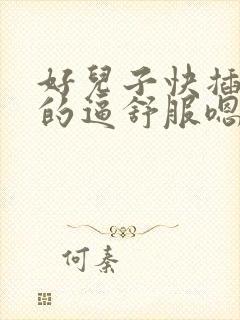 好兒子快插
的逼舒服嗯
何秦